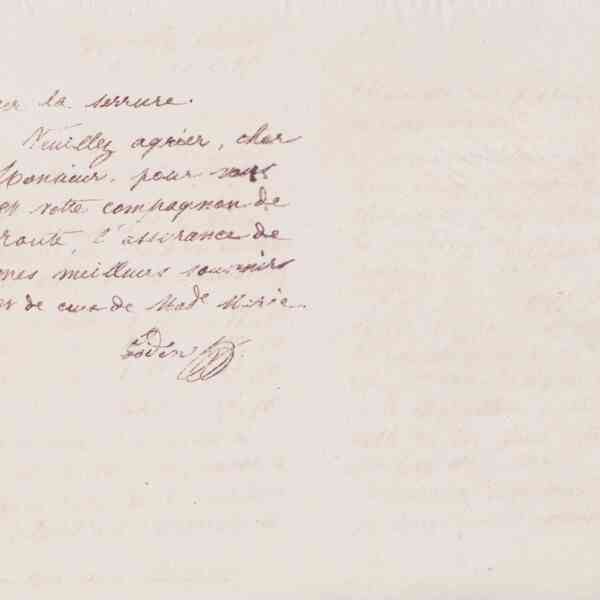 la serrure.
Veuillez agréer, cher
Monsieur, pour vous
et votre compagnon de
route, l'assurance de
mes meilleurs souvenirs
et de ceux de Made Marie.
Godin